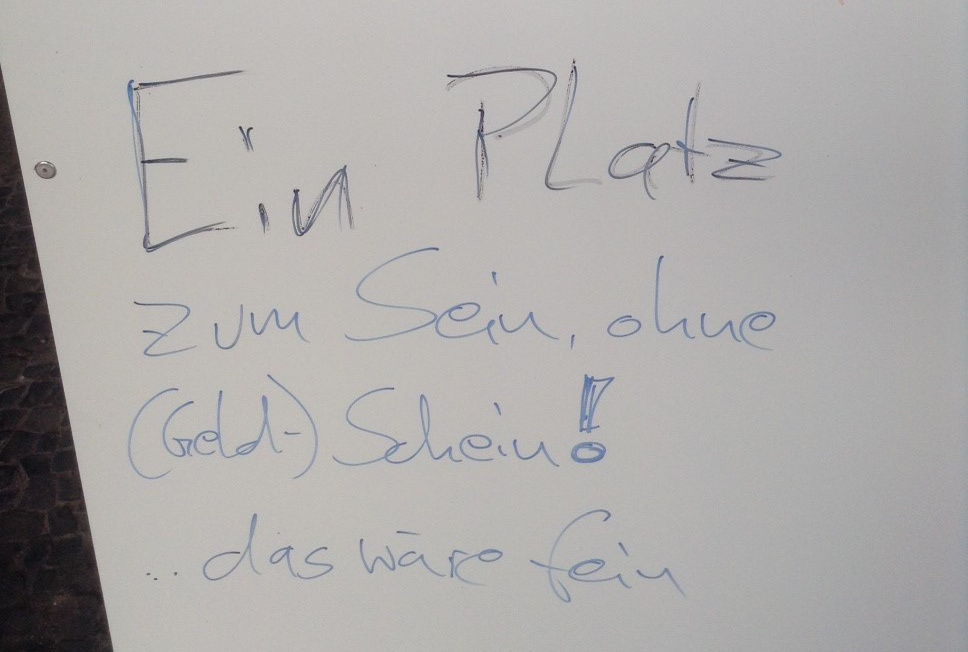 Ein Platz
zum Sein, ohne
(Geld-) Schein!
... das wäre fein